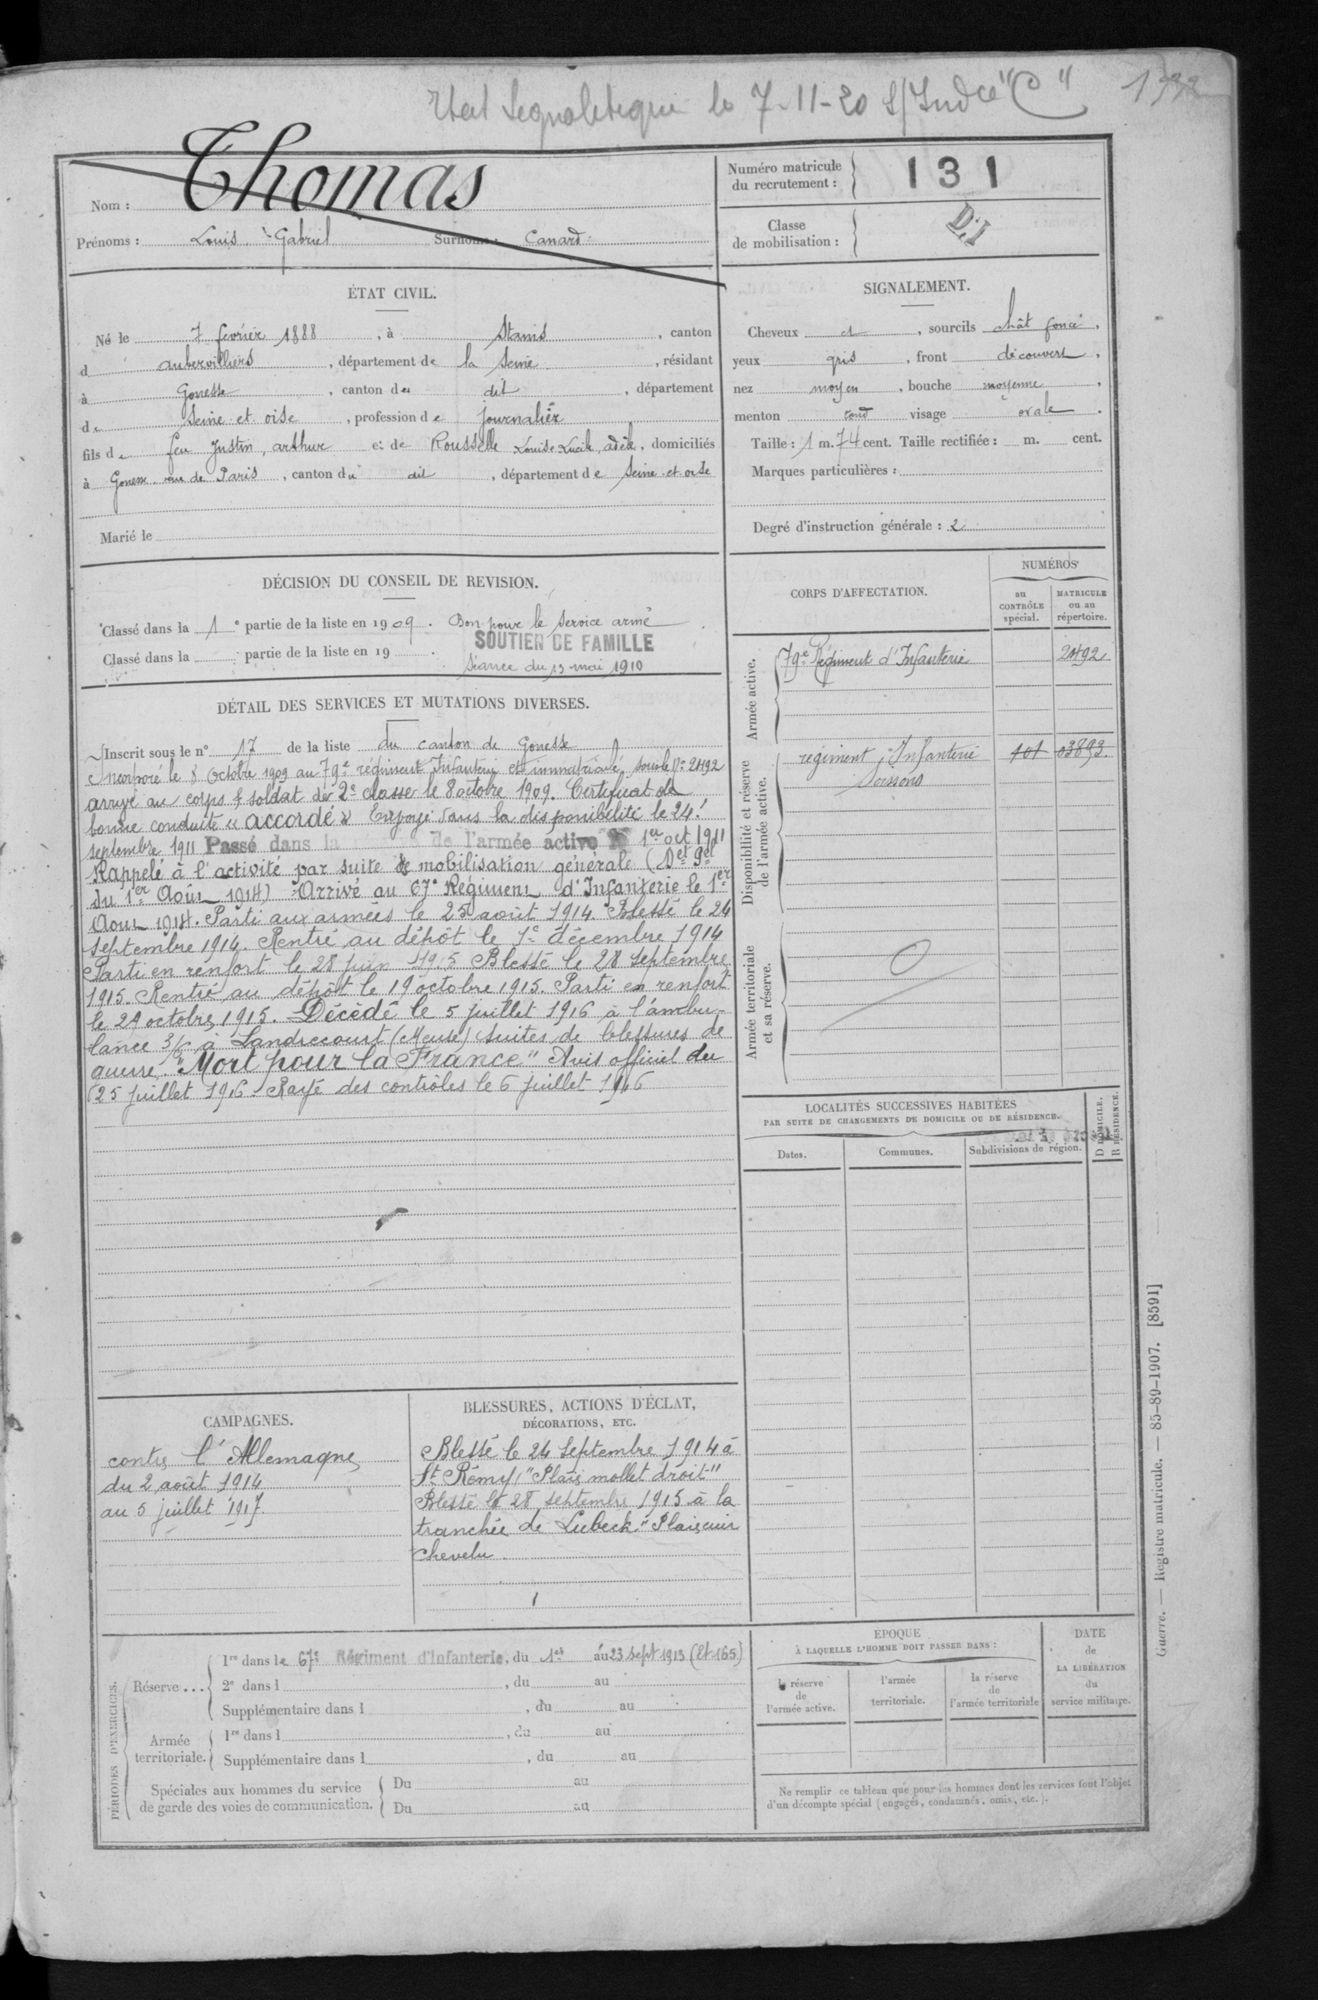 Etat Signaletique le 7-11-20 S/Indce "C" 1932
Nom : Thomas
Prénoms : Louis Gabriel Surnoms : Canard
Numéro matricule du recrutement : 131
Classe de mobilisation : D.I
ÉTAT CIVIL.
Né le 7 février 1888, à Stains, canton
d aubervilliers, département de la Seine, résidant
à Gonesse, canton du dit, département
de Seine et oise, profession de journalier
fils de feu Justin, arthur et de Rousselle Louise Lucile, adèle, domiciliés
à Gonesse rue de Paris, canton du dit, département de Seine et oise
Marié le
SIGNALEMENT.
Cheveux et, sourcils chât foncé,
yeux gris, front découvert,
nez moyen, bouche moyenne,
menton rond visage ovale.
Taille : 1 m. 74 cent. Taille rectifiée : m. cent.
Marques particulières :
Degré d'instruction générale : 2
DÉCISION DU CONSEIL DE REVISION.
Classé dans la 1e partie de la liste en 1909. Bon pour le service armé.
SOUTIEN DE FAMILLE
Classé dans la partie de la liste en 19 .
Séance du 13 mai 1910
CORPS D'AFFECTATION.
NUMÉROS
au CONTRÔLE spécial.
MATRICULE ou au répertoire.
Armée active.
79e Régiment d'Infanterie 2492
Disponibilité et réserve de l'armée active.
régiment d'Infanterie 101 03893
Soissons
Armée territoriale et sa réserve.
DÉTAIL DES SERVICES ET MUTATIONS DIVERSES.
Inscrit sous le n° 17 de la liste du canton de Gonesse
Incorporé le 8 Octobre 1909 au 79e régiment Infanterie et immatriculé sous le N° 2492
arrivé au corps & soldat de 2e classe le 8 octobre 1909. Certificat de
bonne conduite "accordé" Envoyé dans la disponibilité le 24
septembre 1911 Passé dans la de l'armée active le 1er oct 1911
Rappelé à l'activité par suite de mobilisation générale (Det Gal
du 1er Août 1914) Arrivé au 67e Régiment d'Infanterie le 1er
Aout 1914. Parti aux armées le 25 août 1914. Blessé le 24
septembre 1914. Rentré au dépôt le 1e décembre 1914
Parti en renfort le 28 juin 1915 Blessé le 28 septembre
1915. Rentré au dépôt le 19 octobre 1915. Parti en renfort
le 29 octobre 1915. Décédé le 5 juillet 1916 à l'ambu-
lance 3/6 à Landrecourt (Meuse) suites de blessures de
guerre. "Mort pour la France" Avis officiel du
25 juillet 1916. Rayé des contrôles le 6 juillet 1916
LOCALITÉS SUCCESSIVES HABITÉES
PAR SUITE DE CHANGEMENTS DE DOMICILE OU DE RÉSIDENCE.
Dates. Communes. Subdivisions de région. D DOMICILE. R RÉSIDENCE.
CAMPAGNES.
contre l'Allemagne
du 2 août 1914
au 5 juillet 1917.
BLESSURES, ACTIONS D'ÉCLAT,
DÉCORATIONS, ETC.
Blessé le 24 septembre 1914 à
St Rémy "Plaie mollet droit"
Blessé le 28 septembre 1915 à la
tranchée de Lubeck. "Plaie cuir
chevelu
PÉRIODES D'EXERCICES.
Réserve... 1re dans le 67e Régiment d'Infanterie, du 1er au 23 sept 1913 (Et. 165)
2e dans l , du au
Supplémentaire dans l , du au
Armée territoriale. 1re dans l , du au
Supplémentaire dans l , du au
Spéciales aux hommes du service de garde des voies de communication. Du au
Du au
ÉPOQUE
À LAQUELLE L'HOMME DOIT PASSER DANS :
la réserve de l'armée active.
l'armée territoriale.
la réserve de l'armée territoriale
DATE de LA LIBÉRATION du service militaire.
Ne remplir ce tableau que pour les hommes dont les services font l'objet
d'un décompte spécial (engagés, condamnés, omis, etc.).
Guerre. — Registre matricule. — 85-89-1907. [8591]